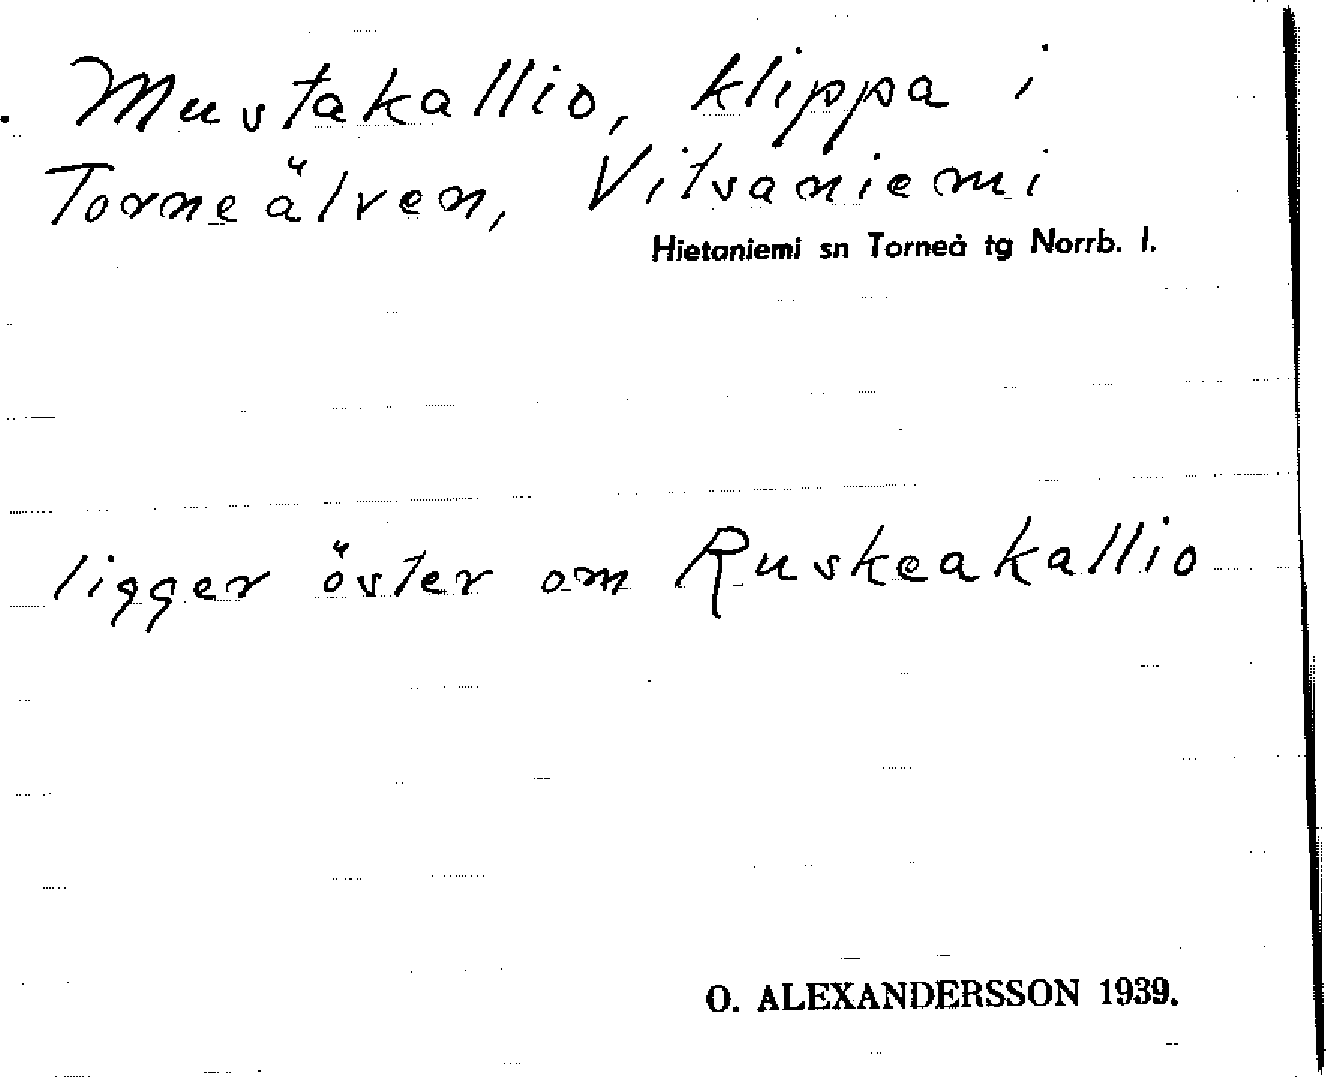 Mustakallio, klippa i
Torneälven, Vitsaniemi
Hietaniemi sn Torneå tg Norrb. l.
ligger öster om Ruskeakallio
O. ALEXANDERSSON 1939.